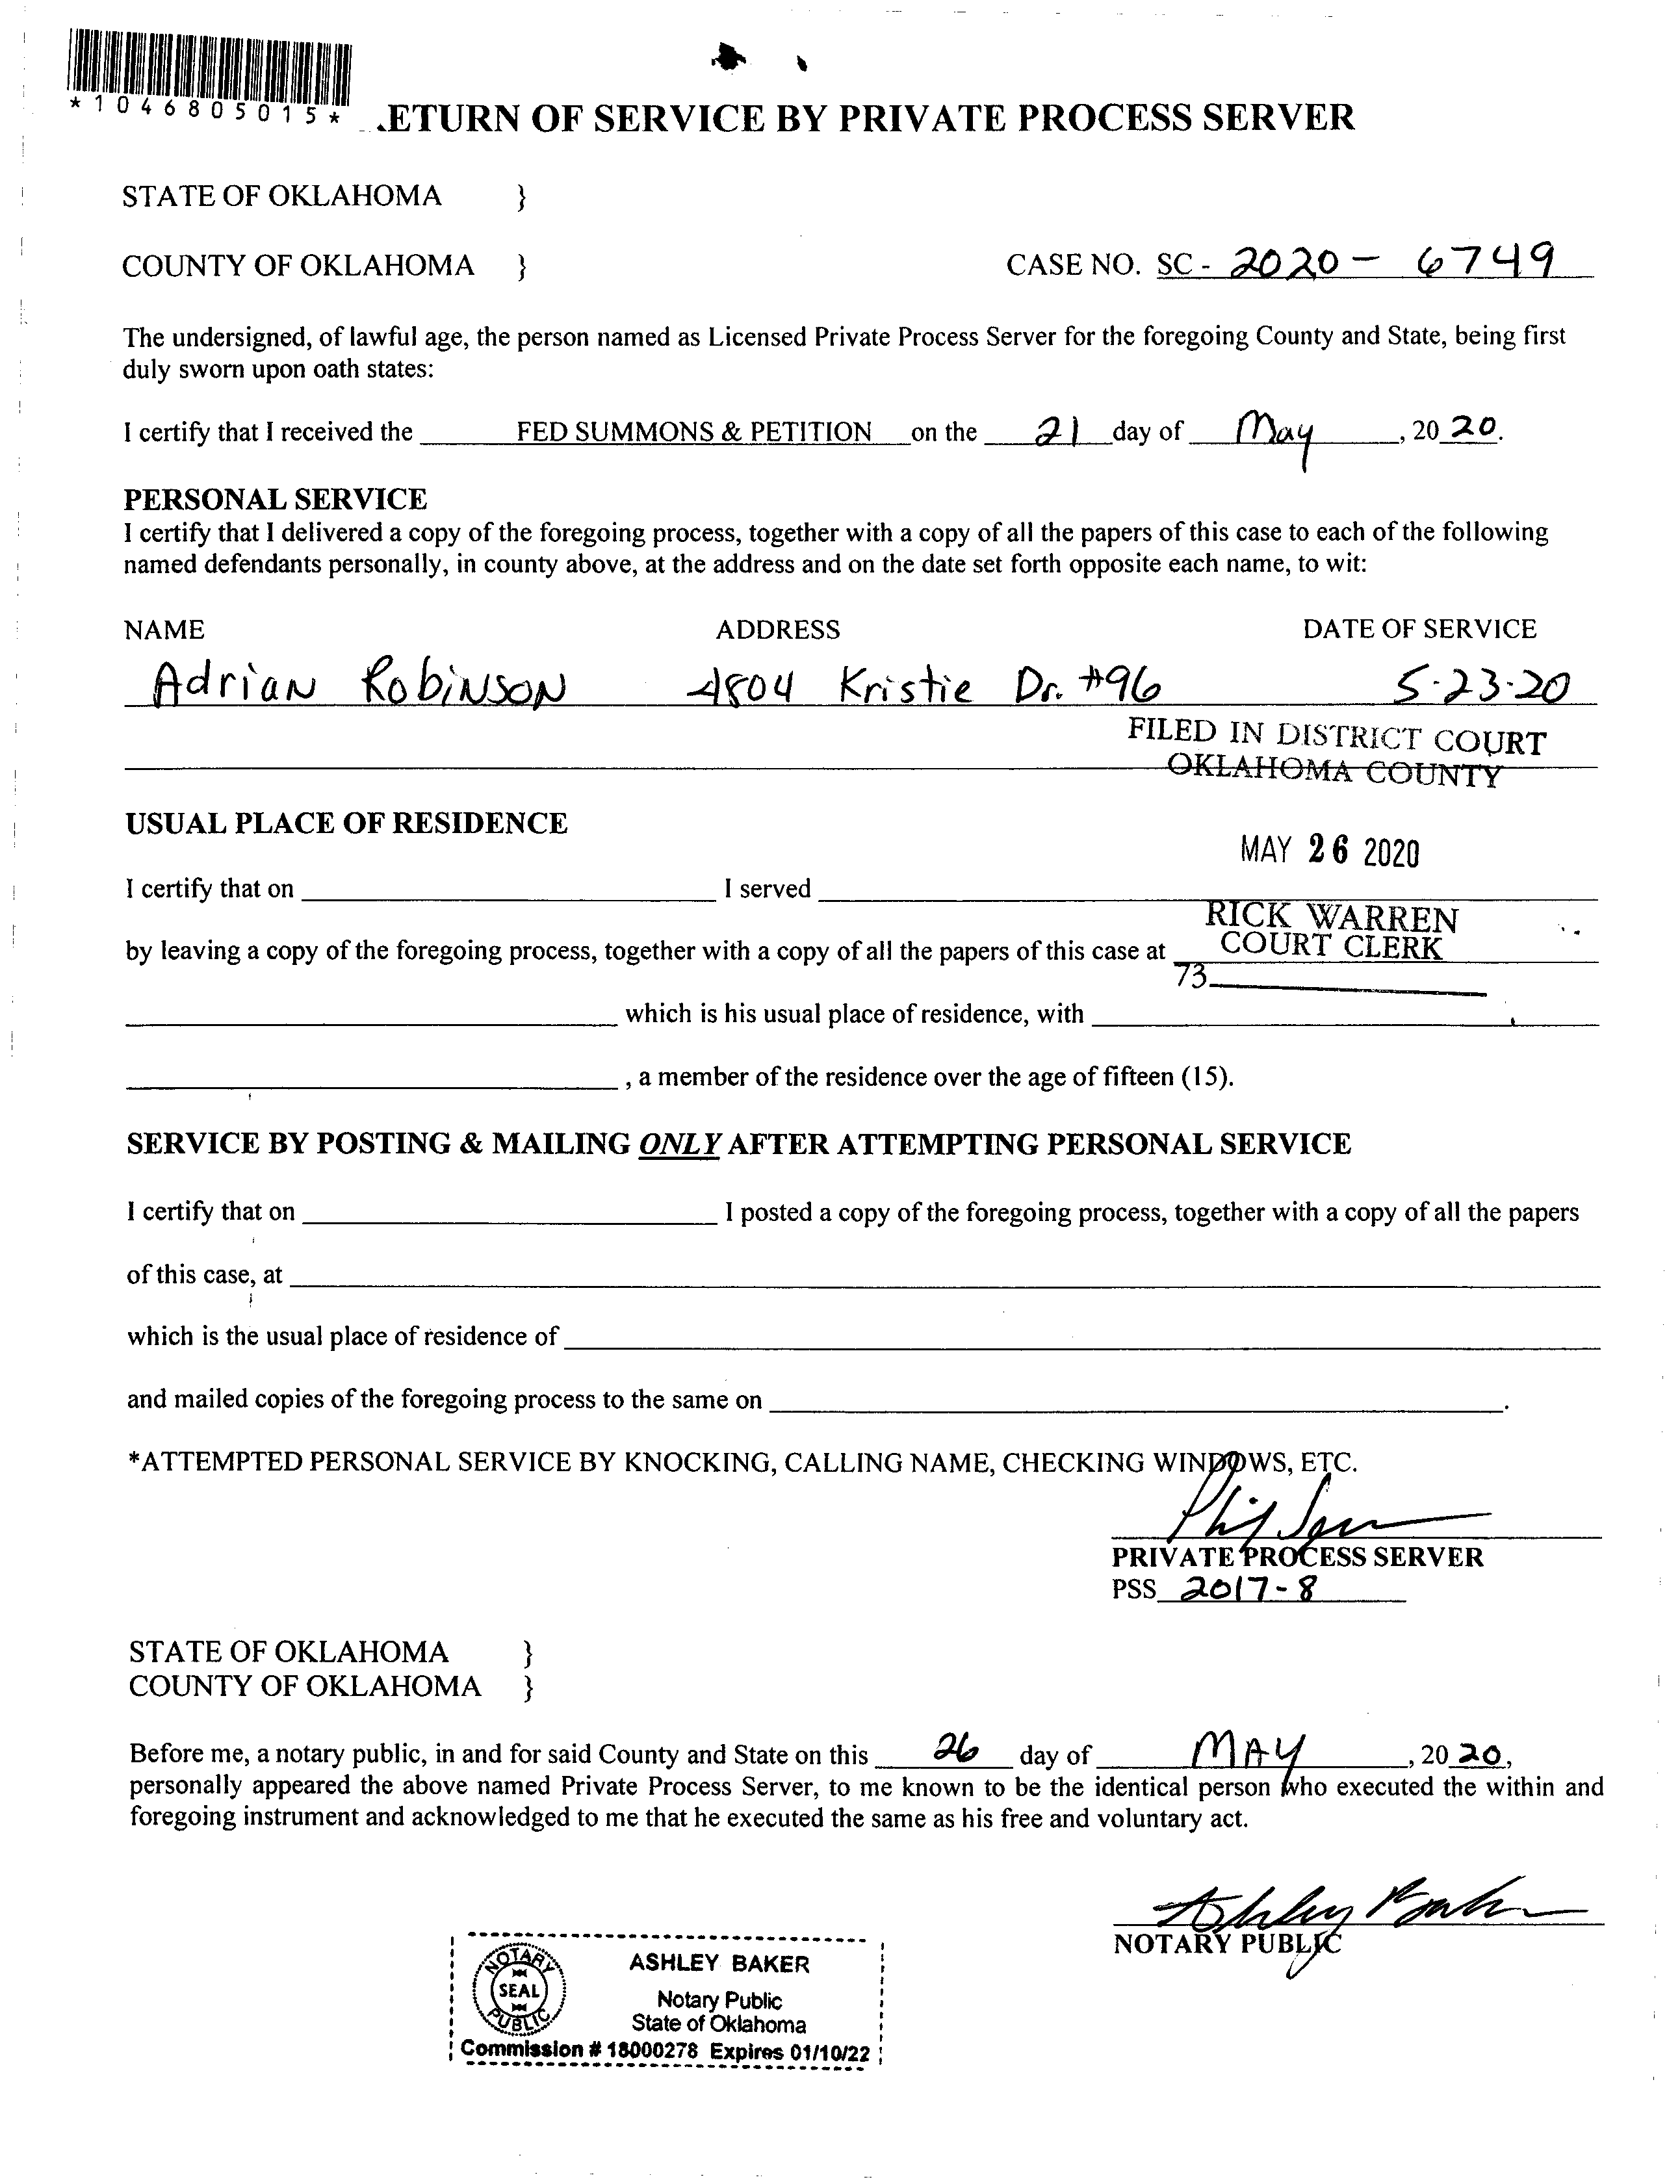 *1046805015*
.ETURN OF SERVICE BY PRIVATE PROCESS SERVER
STATE OF OKLAHOMA }
COUNTY OF OKLAHOMA } CASE NO. SC - 2020 - 6749
The undersigned, of lawful age, the person named as Licensed Private Process Server for the foregoing County and State, being first
duly sworn upon oath states:
I certify that I received the FED SUMMONS & PETITION on the 21 day of May, 20 20.
PERSONAL SERVICE
I certify that I delivered a copy of the foregoing process, together with a copy of all the papers of this case to each of the following
named defendants personally, in county above, at the address and on the date set forth opposite each name, to wit:
NAME ADDRESS DATE OF SERVICE
Adrian Robinson 4804 Kristie Dr. #96 5-23-20
FILED IN DISTRICT COURT
OKLAHOMA COUNTY
USUAL PLACE OF RESIDENCE
MAY 26 2020
I certify that on I served
RICK WARREN
by leaving a copy of the foregoing process, together with a copy of all the papers of this case at COURT CLERK
73
which is his usual place of residence, with
, a member of the residence over the age of fifteen (15).
SERVICE BY POSTING & MAILING ONLY AFTER ATTEMPTING PERSONAL SERVICE
I certify that on I posted a copy of the foregoing process, together with a copy of all the papers
of this case, at
which is the usual place of residence of
and mailed copies of the foregoing process to the same on .
*ATTEMPTED PERSONAL SERVICE BY KNOCKING, CALLING NAME, CHECKING WINDOWS, ETC.
PRIVATE PROCESS SERVER
PSS 2017-8
STATE OF OKLAHOMA }
COUNTY OF OKLAHOMA }
Before me, a notary public, in and for said County and State on this 26 day of MAY, 20 20,
personally appeared the above named Private Process Server, to me known to be the identical person who executed the within and
foregoing instrument and acknowledged to me that he executed the same as his free and voluntary act.
Ashley Baker
NOTARY PUBLIC
NOTARY PUBLIC SEAL
ASHLEY BAKER
Notary Public
State of Oklahoma
Commission # 18000278 Expires 01/10/22